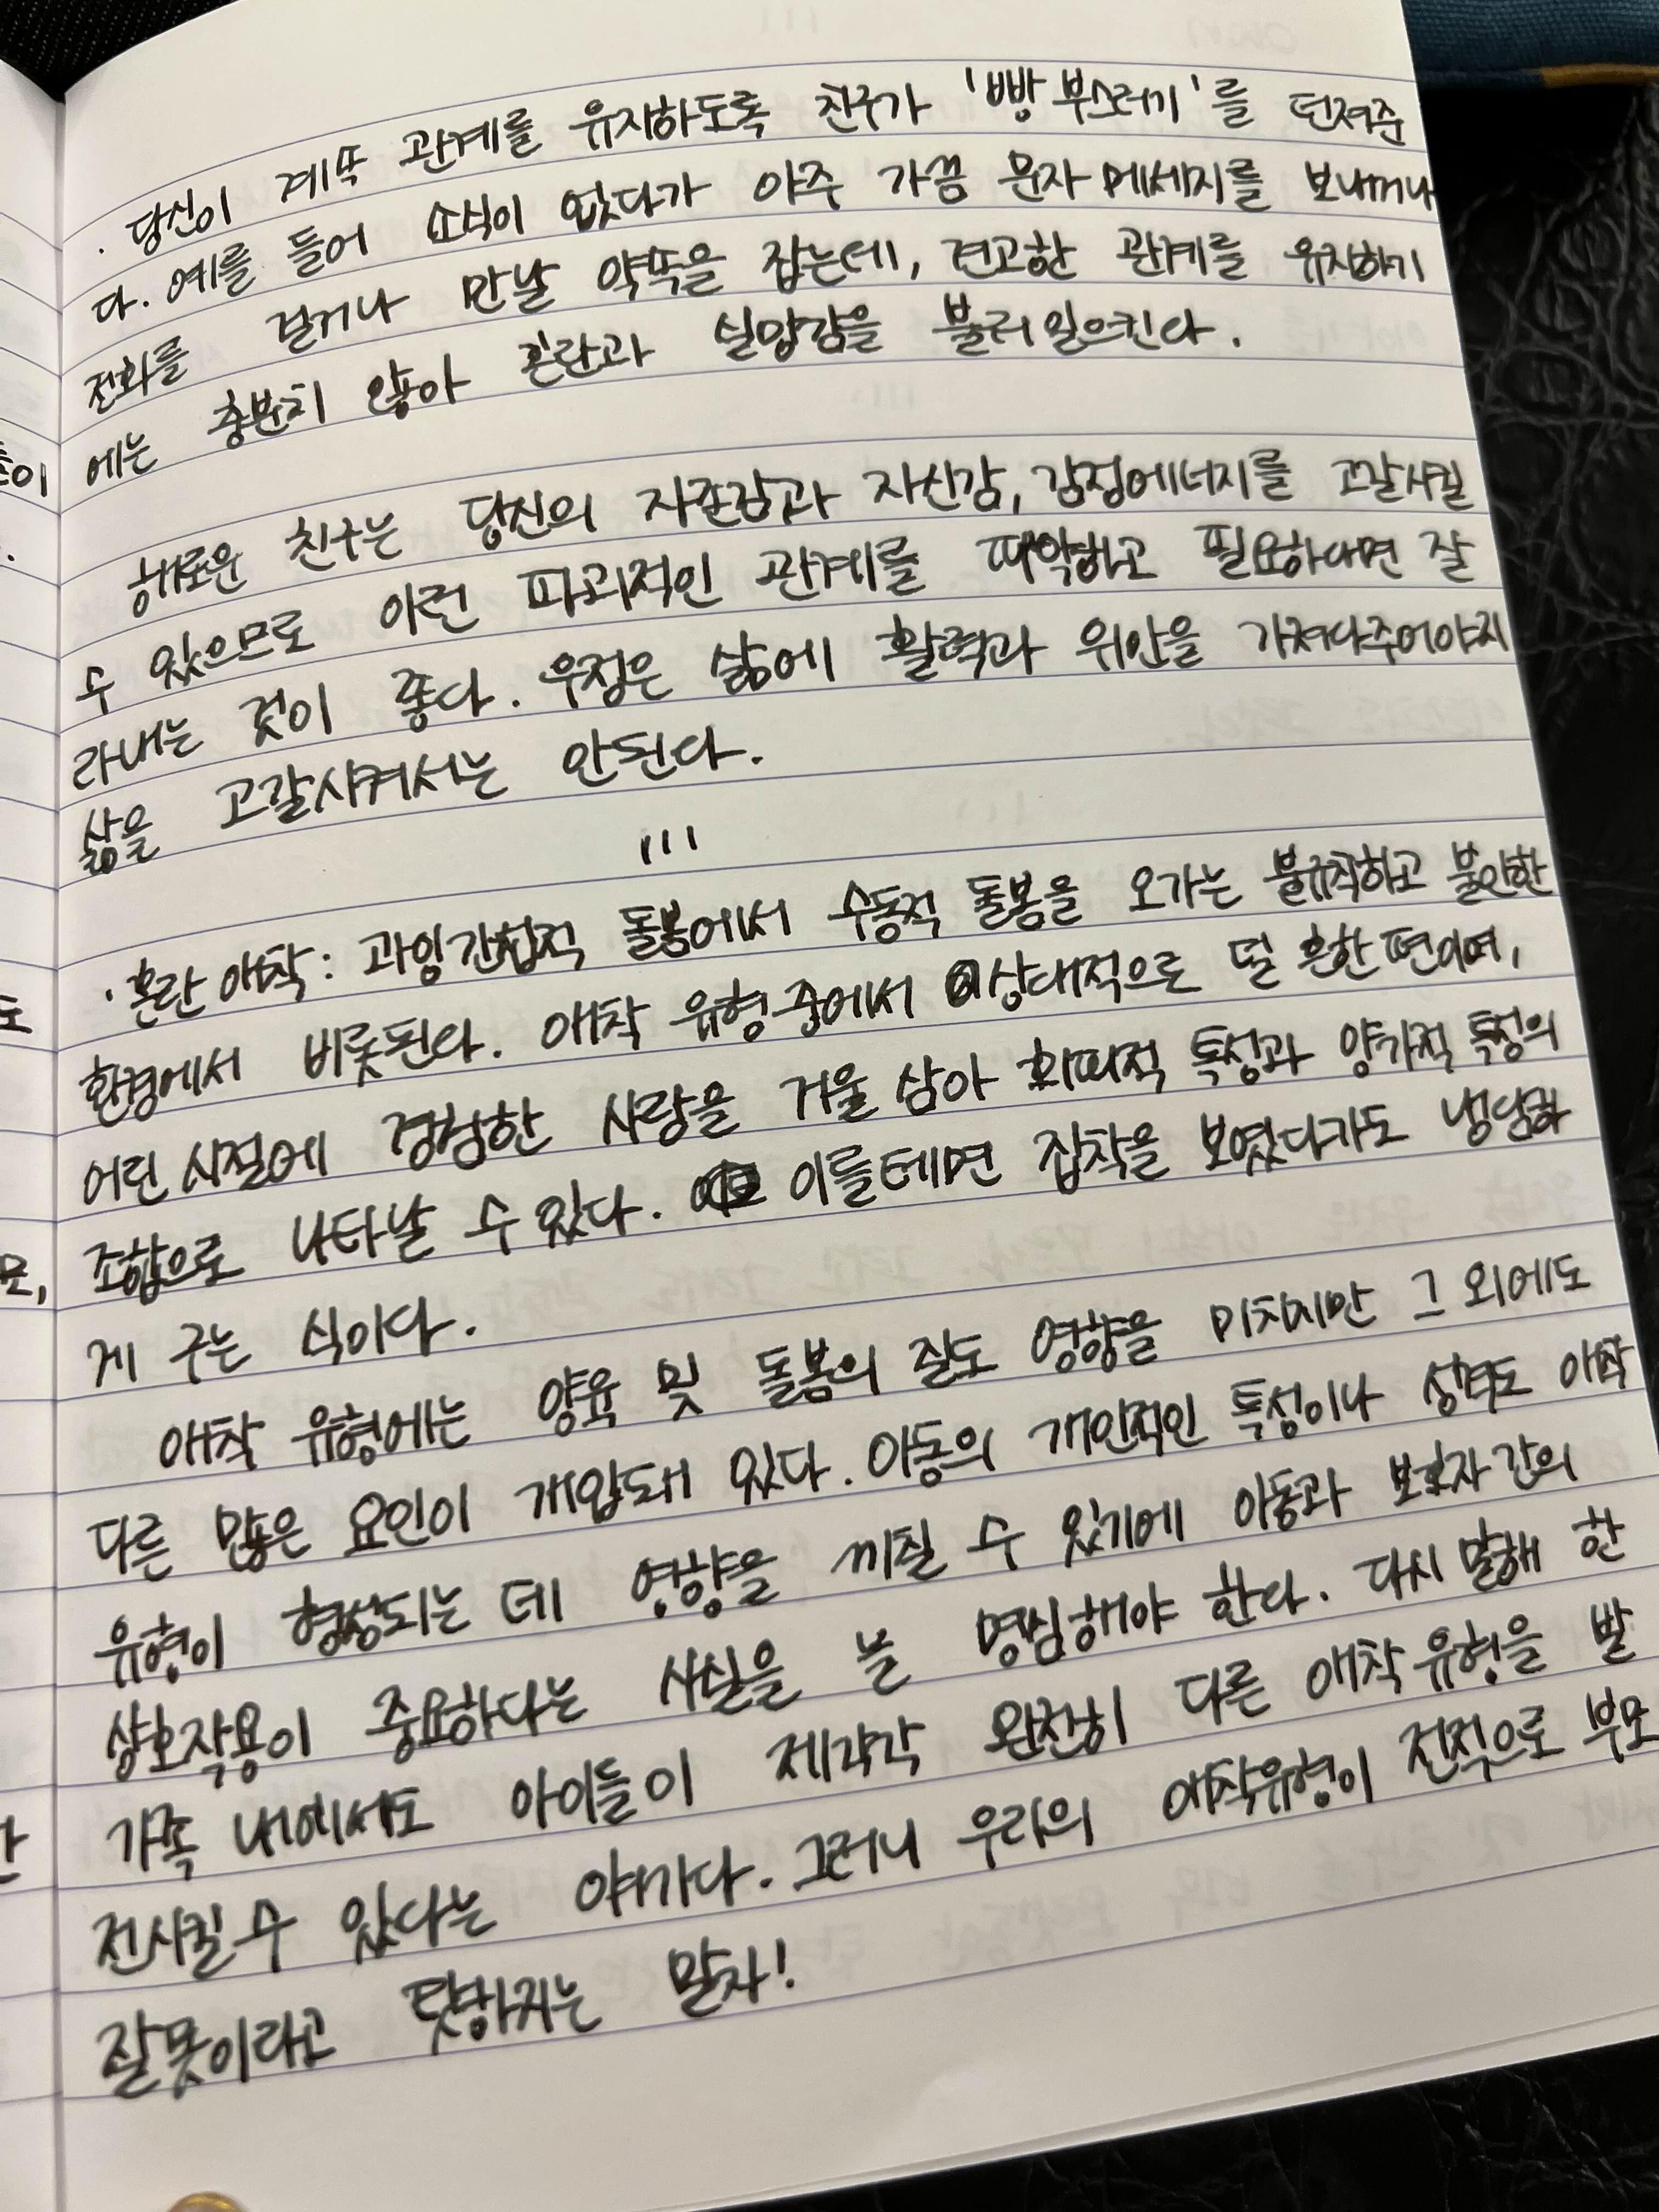 · 당신이 계속 관계를 유지하도록 친구가 '빵 부스러기'를 던져준
다. 예를 들어 소식이 없다가 아주 가끔 문자 메세지를 보내거나
전화를 걸거나 만날 약속을 잡는데, 견고한 관계를 유지하기
에는 충분치 않아 혼란과 실망감을 불러 일으킨다.
해로운 친구는 당신의 자존감과 자신감, 감정에너지를 고갈시킬
수 있으므로 이런 파괴적인 관계를 파악하고 필요하다면 잘
라내는 것이 좋다. 우정은 삶에 활력과 위안을 가져다주어야지
삶을 고갈시켜서는 안된다.
111
· 혼란 애착 : 과잉간섭적 돌봄에서 수동적 돌봄을 오가는 불규칙하고 불안한
환경에서 비롯된다. 애착 유형 중에서 상대적으로 덜 흔한 편이며,
어린 시절에 경험한 사랑을 거울 삼아 회피적 특성과 양가적 특성의
조합으로 나타날 수 있다. 이를테면 집착을 보였다가도 냉담하
게 구는 식이다.
애착 유형에는 양육 및 돌봄의 질도 영향을 미치지만 그 외에도
다른 많은 요인이 개입돼 있다. 아동의 개인적인 특성이나 성격도 애착
유형이 형성되는 데 영향을 끼칠 수 있기에 아동과 보호자 간의
상호작용이 중요하다는 사실을 늘 명심해야 한다. 다시 말해 한
가족 내에서도 아이들이 제각각 완전히 다른 애착 유형을 발
전시킬 수 있다는 얘기다. 그러니 우리의 애착유형이 전적으로 부모
잘못이라고 탓하지는 말자!